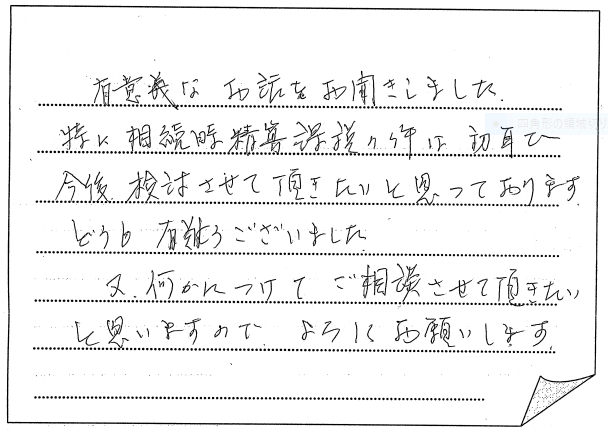 有意義な お話を お聞きしました。
特に 相続時精算課税の件は 初耳で
今後 検討させて頂きたいと思っております。
どうも 有難うございました。
又、何かにつけて ご相談させて頂きたい
と思いますので よろしくお願いします。